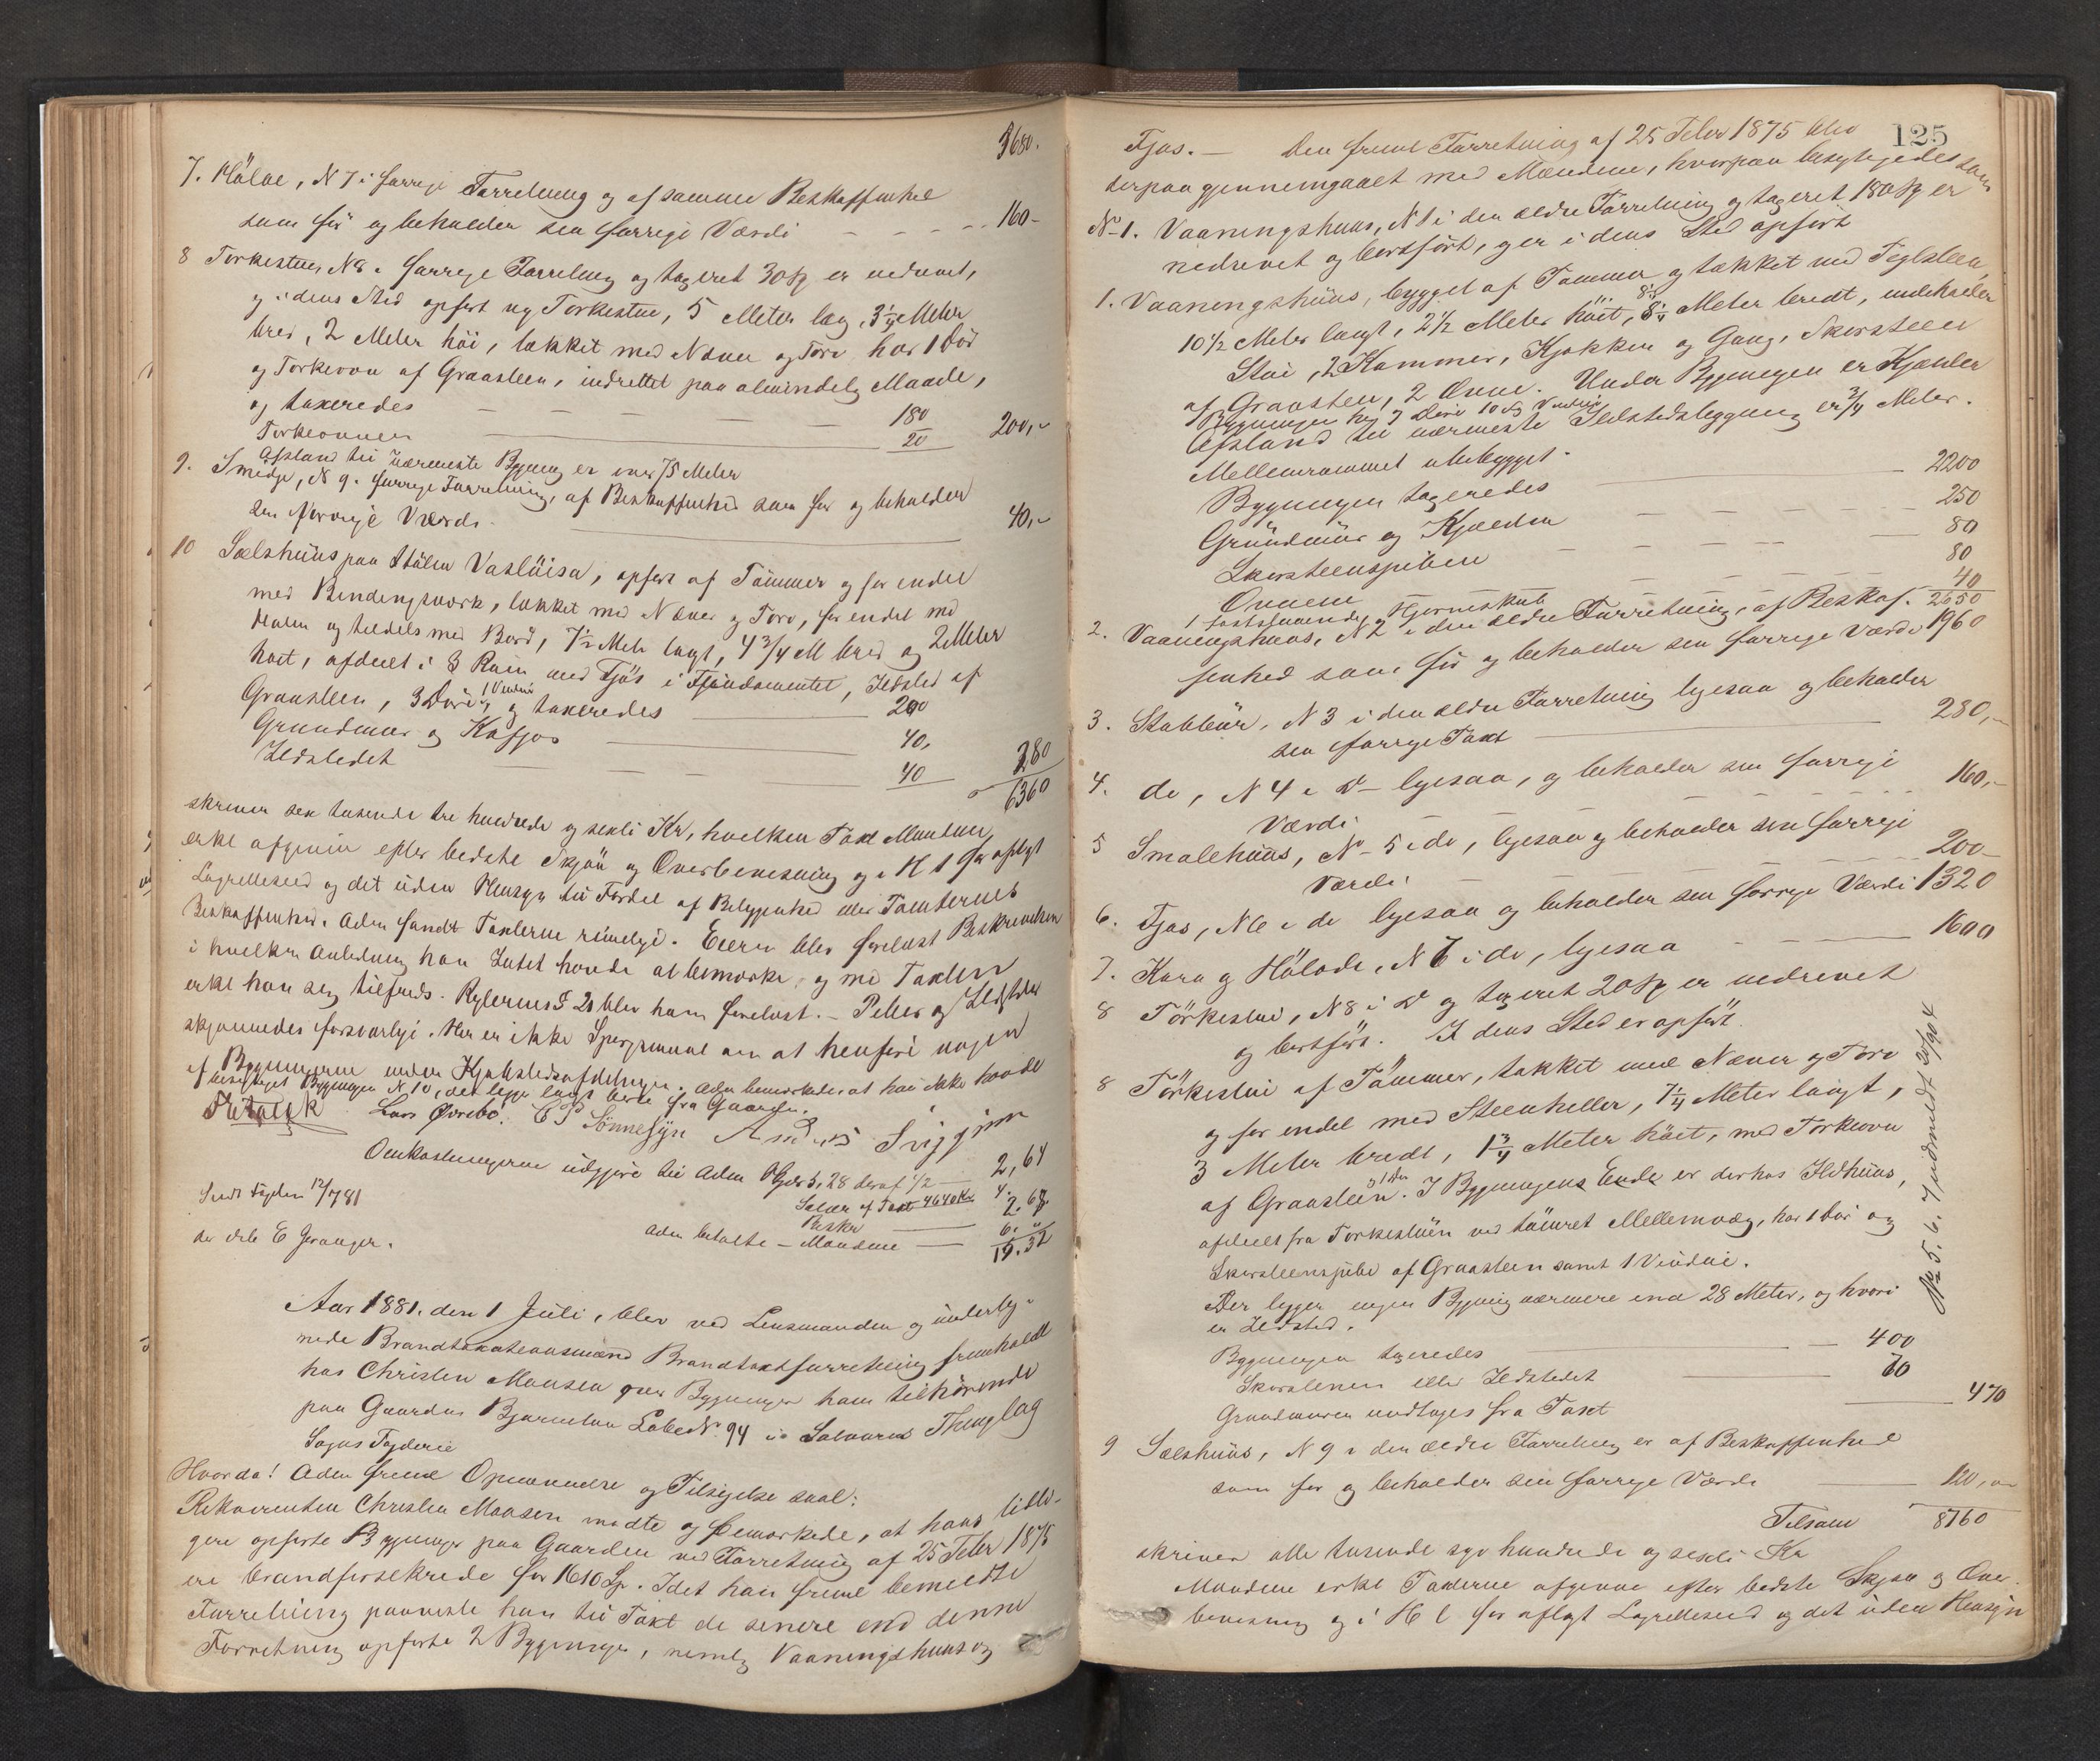 3680.
7. Hölae, N 7 i forrige Forretning og af samme Beskaffenhed
som før og beholder sin forrige Værdi 160-
8 Torkestue, N 8 i forrige Forretning og taxeret 30 Sp er nedrevet,
og i dens Sted opført ny Torkestue, 5 Meter lang, 3 1/4 Meter
bred, 2 Meter høi, takket med Næver og Torv, har 1 Dør
og Torkeovn af Graasteen, indrettet paa almindelig Maade,
og taxeredes 180
Torkeovnen 20 200,-
Afstand til nærmeste Bygning er over 75 Meter
9. Smidje, N 9 i forrige Forretning, af Beskaffenhed som før og beholder
sin forrige Værdi 40,-
10 Sælshuus paa Stölen Vasluisa, opført af Tømmer og for endel
med Bindingsværk, takket med Næver og Torv, for endel med
Halm og tildels med Bord, 7 1/2 Meter langt, 4 3/4 M bred og 2 Meter
høit, afdeelt i 3 Rum med Fjøs i Fundamentet, Ildsted af
Graasteen, 3 Døre, 1 Vindue, og taxeredes 200
Grundmur og Kofjos 40,
Ildstedet 40 280
6360
skriver sex tusende tre hundrede og sexti Kr, hvilken Taxt Mændene
erkl afgivin efter bedste Skjøn og Overbeviisning og i H t før aflagt
Lagretteseed og det uden Hensyn til Fordel af Beliggenhed eller Tomternes
Beskaffenhed. Aden fandt Taxterne rimelige. Eieren blev forelæst Beskrivelsen
i hvilken Anledning han Intet havde at bemærke, og med Taxten
erkl han sig tilfreds. Reglernes § 20 blev ham forelæst. - Peber og Ildsteder
skjønnedes forsvarlige. Her er ikke Spørgsmaal om at henføre nogen
af Bygningerne under Kjøbstedsafdelingen. Aden bemærkede at han ikke havde
besigtiget Bygningen N 10, der ligger langt borte fra Gaarden.
Lars Øvrebø. E P Sønnesyn Anders
Omkostningerne udgjøre til Aden 5,28 deraf 1/2 2,64
Salær af Taxt 4640 Kr 4.
Beskr 2.68
Aden betalte - Mændene 6. "
15.32
Sendt Fogden 12/7 81
Aar 1881, den 1 Juli, blev ved Lensmanden og underteg-
nede Brandtaxationsmænd Brandtaxtforretning fremholdt
hos Christen Monsen over Bygninger ham tilhørende
paa Gaarden Bjørnetun Løbe N. 94 i Solvorns Thinglag
Sogns Fogderie
Hvorda! Aden freml Opnævnelse og Tilsigelse saal:
Rekvirenten Christen Monsen mødte og bemærkede, at hans tidli-
gere opførte Bygninger paa Gaarden ved Forretning af 25 Febr 1875
ere brandforsikrede for 1610 Sp. Idet han freml bemeldte
Forretning paaviste han til Taxt de senere end denne
Forretning opførte 2 Bygninger, nemlig Vaaningshuus og
125
Fjøs. - Den freml Forretning af 25 Febr 1875 blev
derpaa gjennemgaaet med Mændene, hvorpaa besigtigedes som
N- 1. Vaaningshuus, N 1 i den ældre Forretning og taxeret 180 Sp er
nedrevet og bortført, og er i dens Sted opført
1. Vaaningshuus, bygget af Tømmer og takket med Teglsteen,
10 1/2 Meter langt, 2 1/2 Meter høit, 8 1/4 Meter bredt, indeholder
Stue, 2 Kammer, Kjøkken og Gang, Skorsteen
af Graasten, 2 Ovne. Under Bygningen er Kjælder
Bygningen har 7 Døre 10 Vinduer
Afstand til nærmeste Ildstedsbygning er 3/4 Meter.
Mellemrummet ubebygget.
Bygningen taxeredes 2200
Grundmur og Kjælder 250
Skorsteenspiben 80
Ovnene 80
1 faststaaende Hjørneskab 40
2650
2. Vaaningshuus, N 2 i den ældre Forretning, af Beskaf-
fenhed som før og beholder sin forrige Værdi 1960
3. Stabbur, N 3 i den ældre Forretning ligesaa og beholder
sin forrige Taxt 280,-
4. do, N 4 i do - ligesaa, og beholder sin forrige
Værdi 160,-
5 Smalehuus, N- 5 i do, ligesaa og beholder sin forrige
Værdi 200-
6. Fjøs, N 6 i do ligesaa og beholder sin forrige Værdi 1320
7. Korn og Hölade, N 7 i do, ligesaa 1600
8 Törkestue, N 8 i do og taxeret 20 Sp er nedrevet
og bortført. I dens Sted er opført.
8 Törkestue af Tømmer, takket med Næver og Torv
og for endel med Steenheller, 7 1/4 Meter langt,
3 Meter bredt, 1 3/4 Meter høit, med Torkeovn
af Graasteen. I Bygningens Ende er derhos Ildhuus,
afdeelt fra Torkestuen ved tømret Mellemvæg, har 1 Dør og
Skorsteenspibe af Graasteen samt 1 Vindue.
Der ligger ingen Bygning nærmere end 28 Meter, og hvori
er Ildsted.
Bygningen taxeredes 400
Skorstenen eller Ildstedet 70
470
Grundmuren undtages fra Taxt
9 Sælshuus, N 9 i den ældre Forretning er af Beskaffenhed
som før og beholder sin forrige Værdi 120,-
Tilsam 8760
skriver otte tusende syv hundrede og sexti Kr
Mændene erkl Taxterne afgivne efter bedste Skjøn og Over-
beviisning og i H t før aflagt Lagretteseed og det uden Hensyn
No 5. 6. 7 udmeldt 20/9 04